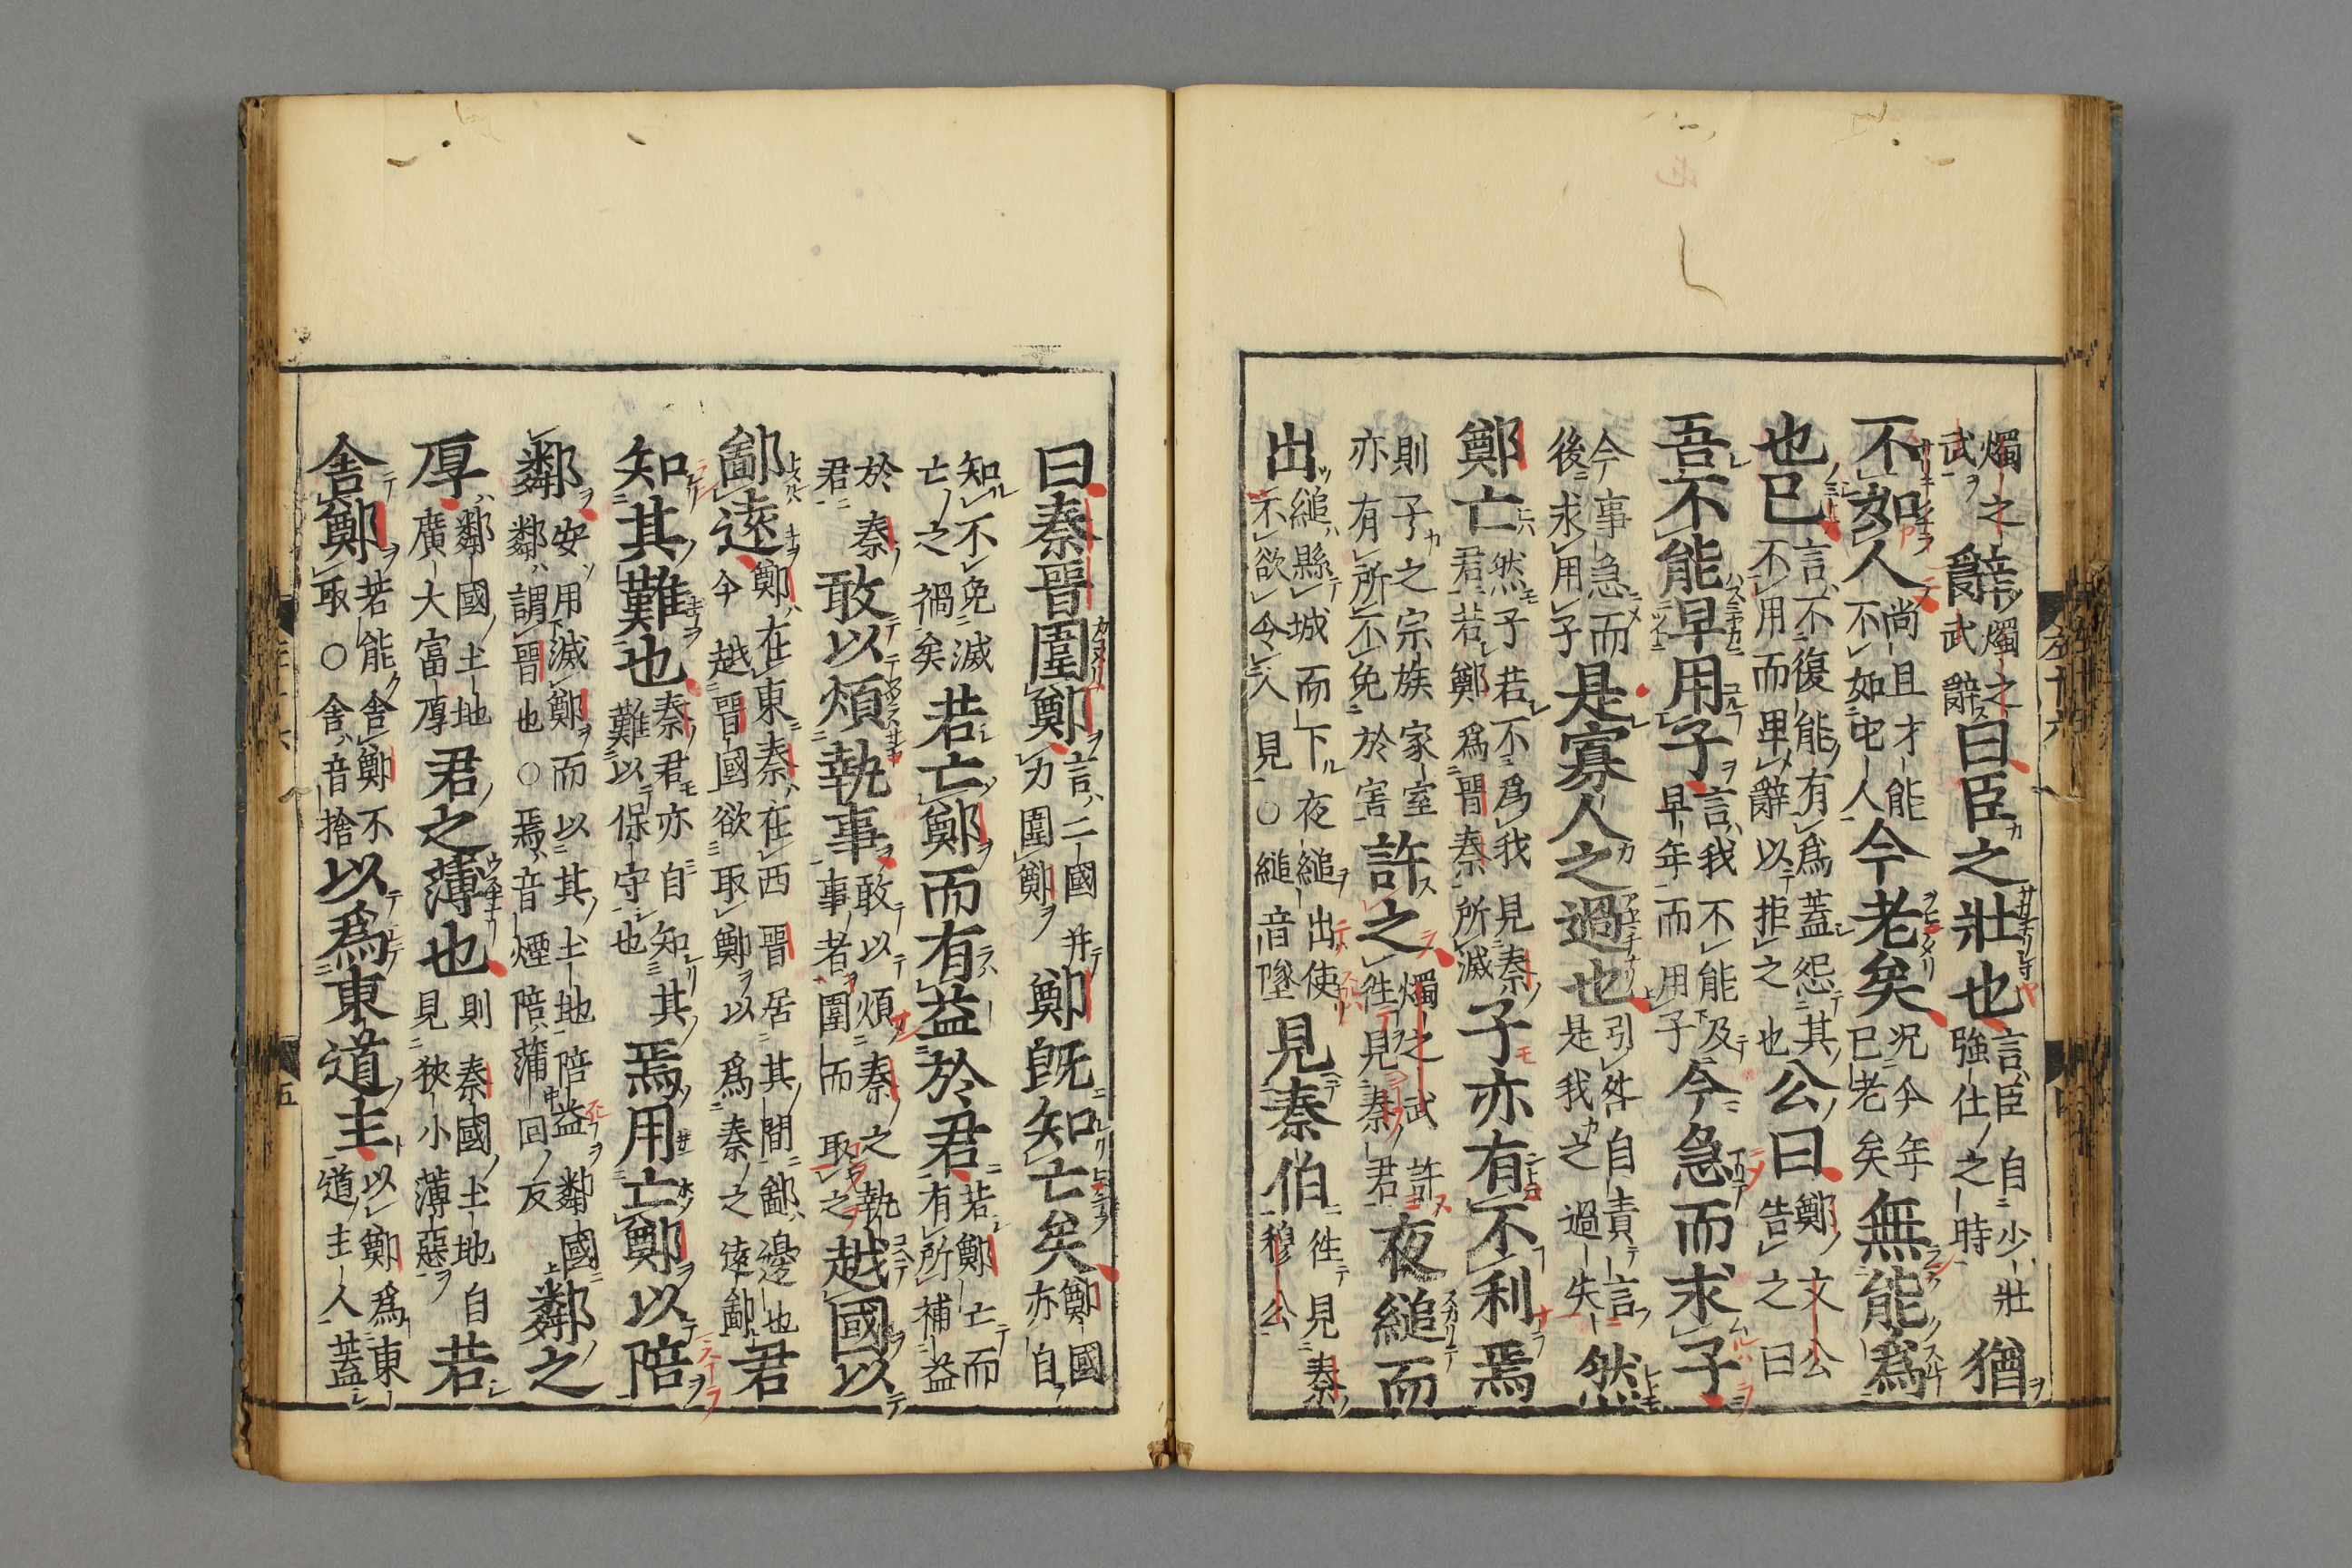 燭之武辭燭之武辭曰臣之壯也言臣自少壯強仕之時猶
不如人尚且才能不如它人今老矣况今年已老矣無能爲
也已言不復能有爲蓋怨其不用而卑辭以拒之也公曰鄭文公告之曰
吾不能早用子言我不能及早年而用子今急而求子
今事急而後求用子是寡人之過也引咎自責言是我之過失然
鄭亡然子若不爲我見秦君若鄭爲晉秦所滅子亦有不利焉
則子之宗族家室亦有所不免於害許之燭之武許往見秦君夜縋而
出縋縣城而下夜縋出使不欲令人見○縋音墜見秦伯往見秦穆公
曰秦晉圍鄭言二國并力圍鄭鄭既知亡矣鄭國亦自
知不免滅亡之禍矣若亡鄭而有益於君若鄭亡而有所補益
於秦君敢以煩執事敢以煩秦之執事者圍而取之越國以
鄙遠鄭在東秦在西晉居其間鄙邊也今越晉國欲取鄭以爲秦之遠鄙君
知其難也秦君亦自知其難以保守也焉用亡鄭以陪
鄰安用滅鄭而以其土地陪益鄰國鄰謂晉也○焉音煙陪蒲回反鄰之
厚鄰國土地廣大富厚君之薄也則秦國土地自見狹小薄惡若
舍鄭若能舍鄭不取○舍音捨以爲東道主以鄭爲東道主人蓋